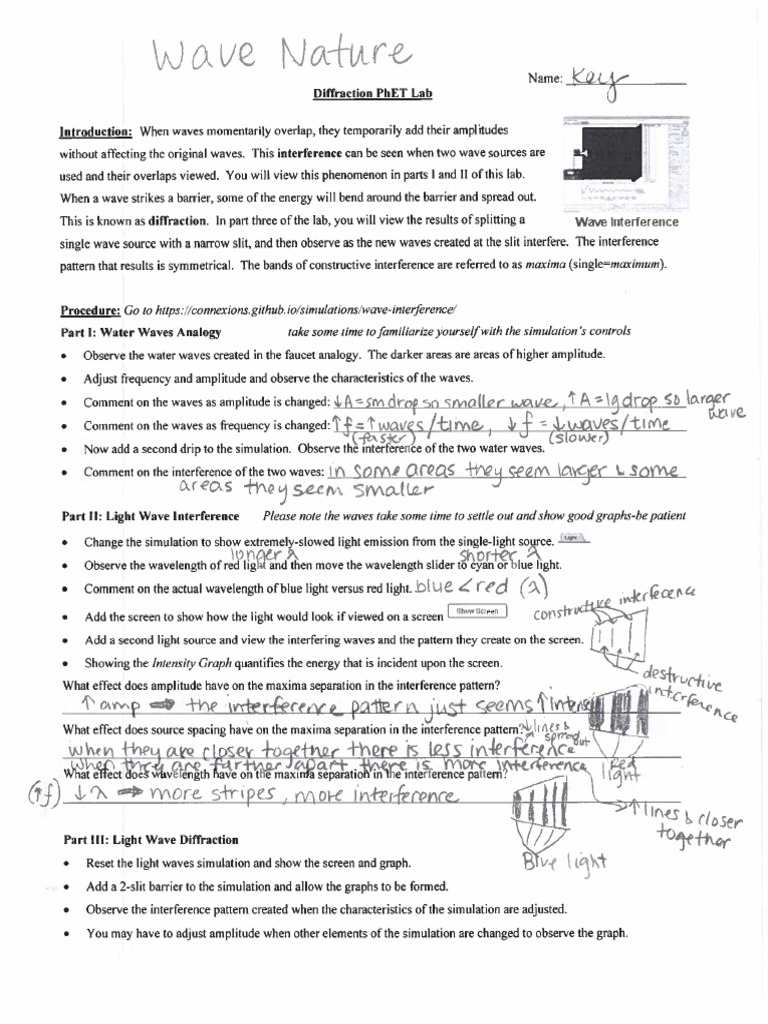 Wave Nature
Name: Key
Diffraction PhET Lab
Introduction: When waves momentarily overlap, they temporarily add their amplitudes
without affecting the original waves. This interference can be seen when two wave sources are
used and their overlaps viewed. You will view this phenomenon in parts I and II of this lab.
When a wave strikes a barrier, some of the energy will bend around the barrier and spread out.
This is known as diffraction. In part three of the lab, you will view the results of splitting a
Wave Interference
single wave source with a narrow slit, and then observe as the new waves created at the slit interfere. The interference
pattern that results is symmetrical. The bands of constructive interference are referred to as maxima (single=maximum).
Procedure: Go to https://connexions.github.io/simulations/wave-interference/
Part I: Water Waves Analogy take some time to familiarize yourself with the simulation's controls
• Observe the water waves created in the faucet analogy. The darker areas are areas of higher amplitude.
• Adjust frequency and amplitude and observe the characteristics of the waves.
• Comment on the waves as amplitude is changed: ↓A=sm drop so smaller wave, ↑A=lg drop so larger
wave
• Comment on the waves as frequency is changed: ↑f=↑waves/time, ↓f=↓waves/time
(faster) (slower)
• Now add a second drip to the simulation. Observe the interference of the two water waves.
• Comment on the interference of the two waves: in some areas they seem larger & some
areas they seem smaller
Part II: Light Wave Interference Please note the waves take some time to settle out and show good graphs-be patient
• Change the simulation to show extremely-slowed light emission from the single-light source. Light
longer λ shorter λ
• Observe the wavelength of red light and then move the wavelength slider to cyan or blue light.
• Comment on the actual wavelength of blue light versus red light. blue < red (λ)
constructive interference
• Add the screen to show how the light would look if viewed on a screen Show Screen
• Add a second light source and view the interfering waves and the pattern they create on the screen.
• Showing the Intensity Graph quantifies the energy that is incident upon the screen.
destructive
interference
What effect does amplitude have on the maxima separation in the interference pattern?
↑ amp ⇒ the interference pattern just seems ↑
What effect does source spacing have on the maxima separation in the interference pattern? ↓lines &
spread out
when they are closer together there is less interference
when they are further apart there is more interference
Red
light
What effect does wavelength have on the maxima separation in the interference pattern?
(↑f) ↓λ ⇒ more stripes, more interference
↑ lines & closer
together
Blue light
Part III: Light Wave Diffraction
• Reset the light waves simulation and show the screen and graph.
• Add a 2-slit barrier to the simulation and allow the graphs to be formed.
• Observe the interference pattern created when the characteristics of the simulation are adjusted.
• You may have to adjust amplitude when other elements of the simulation are changed to observe the graph.